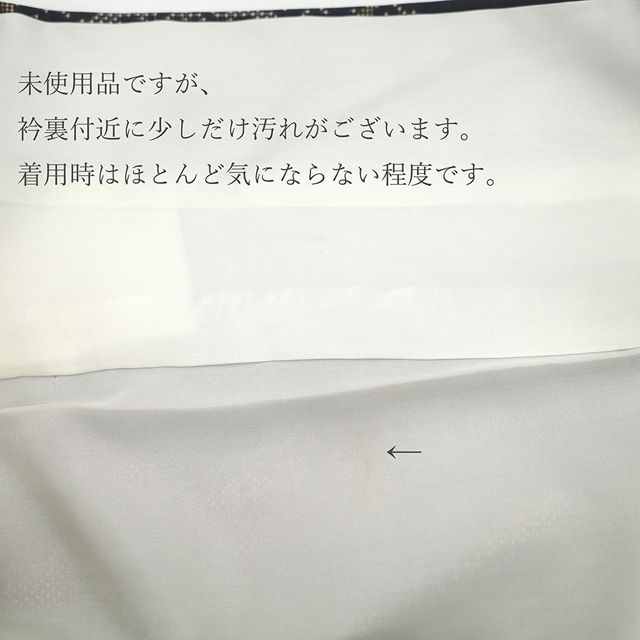 未使用品ですが、
衿裏付近に少しだけ汚れがございます。
着用時はほとんど気にならない程度です。
←